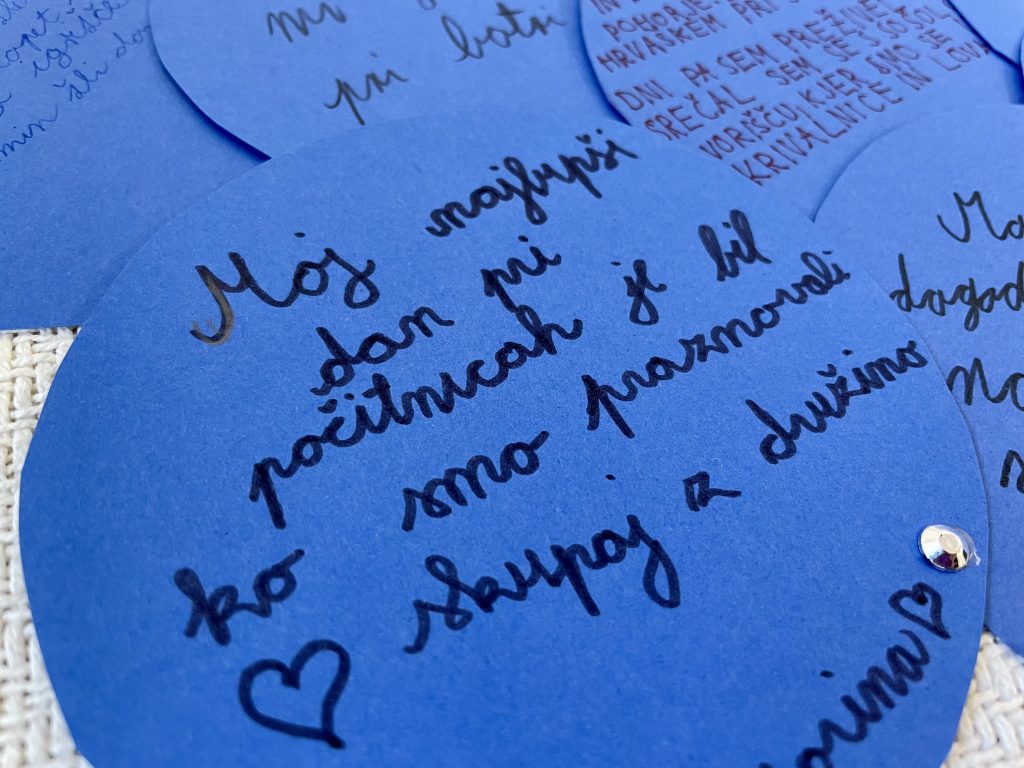 igrišče
min šli do
pri botri
POHORJE
HRVAŠKEM PRI
DNI PA SEM PREŽIVEL
SREČAL SEM SE S SOŠOL
VORIŠČU KJER SMO SE
KRIVALNICE IN
Moj najlepši
dan pri
počitnicah je bil
ko smo praznovali
skupaj z družino
orina
dogod